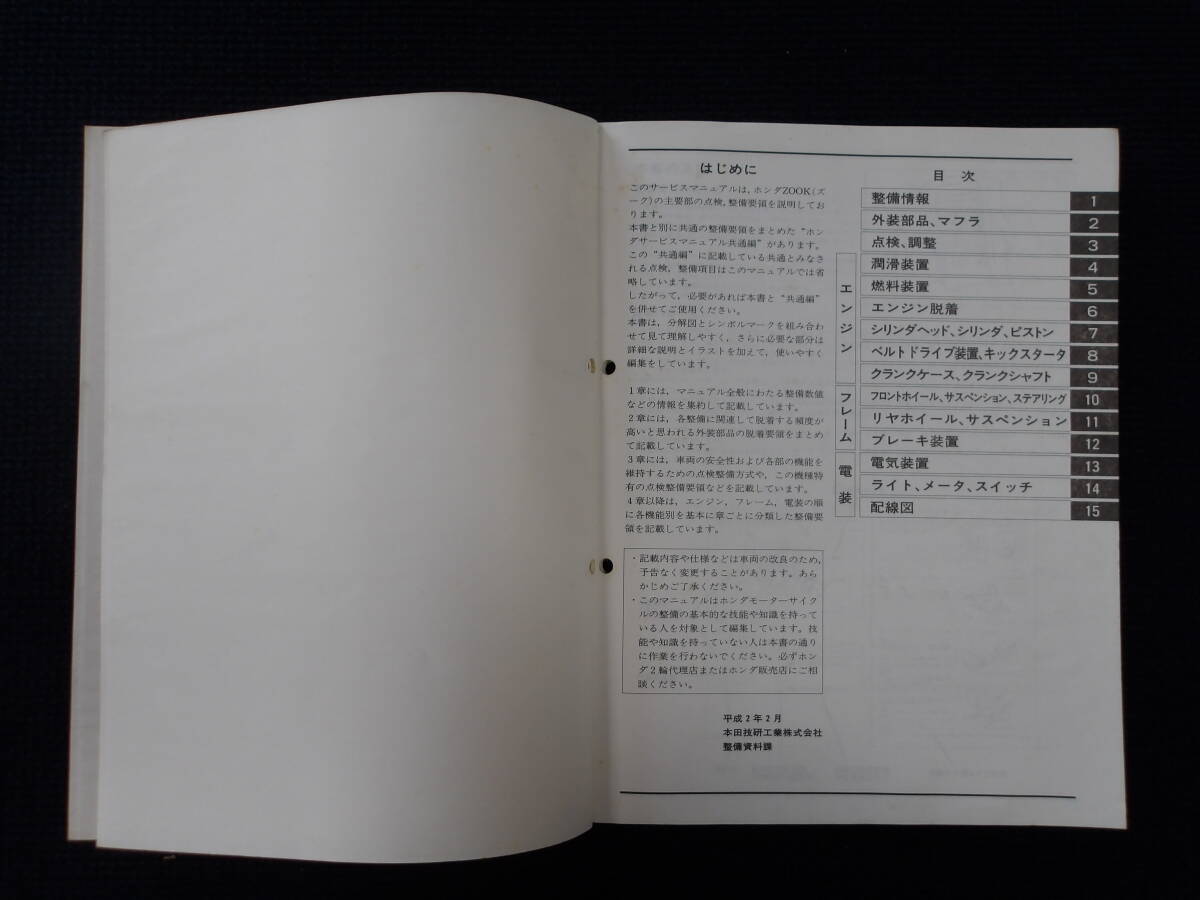 はじめに
このサービスマニュアルは,ホンダZOOK(ズ
ーク)の主要部の点検,整備要領を説明してお
ります。
本書と別に共通の整備要領をまとめた“ホン
ダサービスマニュアル共通編”があります。
この“共通編”に記載している共通とみなさ
れる点検,整備項目はこのマニュアルでは省
略しています。
したがって,必要があれば本書と“共通編”
を併せてご使用ください。
本書は,分解図とシンボルマークを組み合わ
せて見て理解しやすく,さらに必要な部分は
詳細な説明とイラストを加えて,使いやすく
編集をしています。
1章には,マニュアル全般にわたる整備数値
などの情報を集約して記載しています。
2章には,各整備に関連して脱着する頻度
が高いと思われる外装部品の脱着要領をまとめ
て記載しています。
3章には,車両の安全性および各部の機能を
維持するための点検整備方式や,この機種特
有の点検整備要領などを記載しています。
4章以降は,エンジン,フレーム,電装の順
に各機能別を基本に章ごとに分類した整備要
領を記載しています。
・記載内容や仕様などは車両の改良のため,
予告なく変更することがあります。あら
かじめご了承ください。
・このマニュアルはホンダモーターサイク
ルの整備の基本的な技能や知識を持って
いる人を対象として編集しています。技
能や知識を持っていない人は本書の通り
に作業を行わないでください。必ずホン
ダ2輪代理店またはホンダ販売店にご相
談ください。
平成2年2月
本田技研工業株式会社
整備資料課
目次
整備情報 1
外装部品、マフラ 2
点検、調整 3
エンジン
潤滑装置 4
燃料装置 5
エンジン脱着 6
シリンダヘッド、シリンダ、ピストン 7
ベルトドライブ装置、キックスタータ 8
クランクケース、クランクシャフト 9
フレーム
フロントホイール、サスペンション、ステアリング 10
リヤホイール、サスペンション 11
ブレーキ装置 12
電装
電気装置 13
ライト、メータ、スイッチ 14
配線図 15